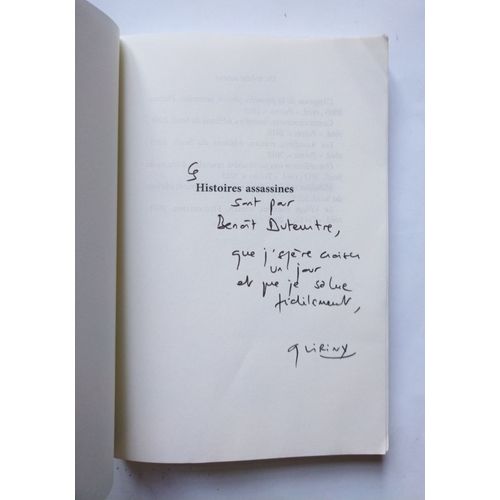 Ces
Histoires assassines
sont pour
Benoît Duteurtre,
que j'espère croiser
un jour
et que je salue
fidèlement,
QUIRINY